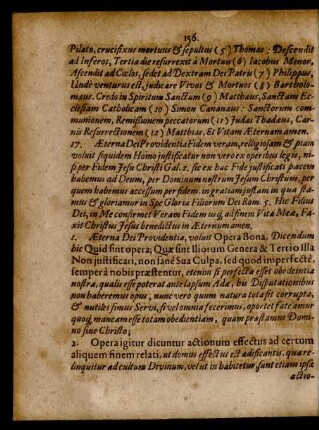 156.
Pilato, crucifixus mortuus & sepultus (5) Thomas; Descendit
ad Inferos, Tertia die resurrexit à Mortuis (6) Iacobus Menor,
Ascendit ad Cœlos, sedet ad Dextram Dei Patris (7) Philippus,
Unde venturus est, judicare Vivos & Mortuos (8) Bartholo-
mæus. Credo in Spiritum Sanctum (9) Matthæus, Sanctam Ec-
clesiam Catholicam (10) Simon Cananæus: Sanctorum com-
munionem, Remissionem peccatorum (11) Judas Thadæus, Car-
nis Resurrectionem (12) Matthias, Et Vitam Æternam amen.
17. Æterna Dei Providentia Fidem veram, religiosam & piam
voluit siquidem Homo justificatur non vero ex operibus legis, ni-
si per Fidem Jesu Christi Gal. 2. sic ex hac Fide justificati pacem
habemus ad Deum, per Dominum nostrum Jesum Christum, per
quem habemus accessum per fidem, in gratiam justam in qua sta-
mus & gloriamur in Spe Gloriæ Filiorum Dei Rom. 5. Hic Filius
Dei, in Me confirmet Veram Fidem usq; ad finem Vitæ Meæ, Fa-
xit Christus Jesus benedictus in Æternum amen.
1. Æterna Dei Providentia, voluit Opera Bona. Dicendum
hic Quid sint opera; Quæ sint Iliorum Genera & Tertio Illa
Non justificari, non sanè Sua Culpa, sed quod imperfectè,
semper à nobis præstentur, etenim si perfecta esset obedientia
nostra, qualis esse poterat ante lapsum Adæ, his Disputationibus
non haberemus opus, nunc vero quum natura tota sit corrupta,
& nutiles simus Servi, si vel omnia fecerimus, oportet fateamur
quoq; maneam esse totam obedientiam, quam præstamus Domi-
no sive Christo;
2. Opera igitur dicuntur actionum effectus ad certum
aliquem finem relati, ut domus effectus est ædificantis. quæ re-
linquitur ad cultum Divinum, vel ut in habitetur, sunt etiam ipsæ
actio-